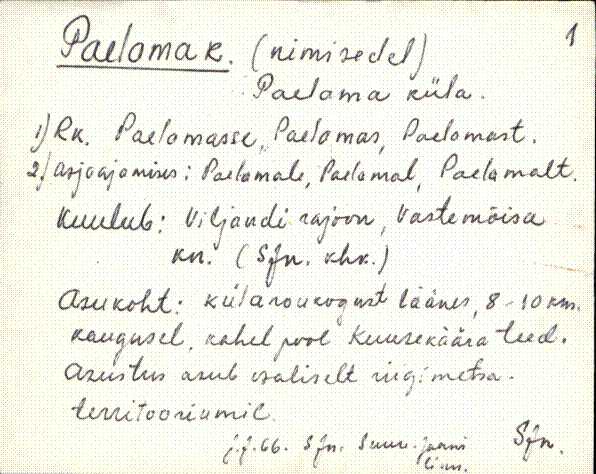 Paelama k. (nimisedel) 1
Paelama küla.
1) Rk. Paelamasse, Paelamas, Paelamast.
2) asjaajamises: Paelamale, Paelamal, Paelamalt.
Kuulub: Viljandi rajoon, Vastemõisa
kn. (Sjn. khk.)
Asukoht: külanõukogust läänes, 8-10 km.
kaugusel, kahel pool Kuusekäära teed.
Asustus asub osaliselt riigimetsa-
territooriumil.
Sjn. Suure-Jaani Sjn.
linn.